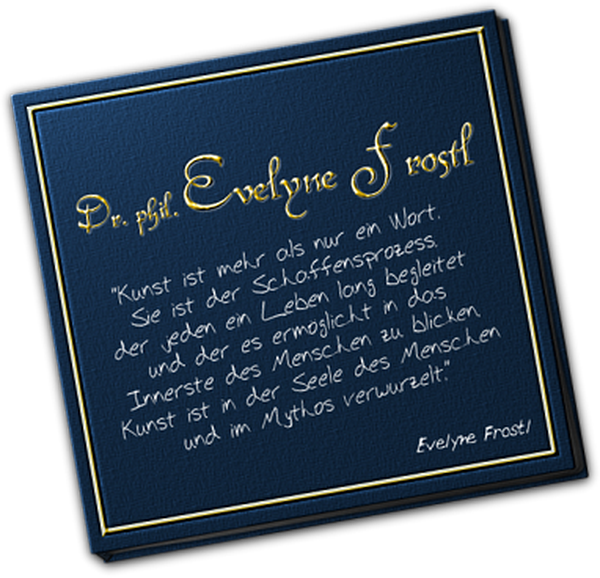 Dr. phil. Evelyne Frostl
"Kunst ist mehr als nur ein Wort.
Sie ist der Schaffensprozess,
der jeden ein Leben lang begleitet
und der es ermöglicht in das
Innerste des Menschen zu blicken
Kunst ist in der Seele des Menschen
und im Mythos verwurzelt."
Evelyne Frostl